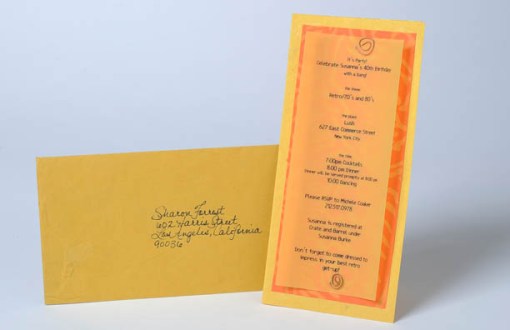 Sharon Forrest
602 Harris Street,
Los Angeles, California
90036
It's Party!
Celebrate Susanna's 40th Birthday
with a bang!
Retro/70's and 80's
Lush
627 East Commerce Street
New York City
7:00pm Cocktails
8:00 pm Dinner
Dinner will be served promptly at 8:00 pm
10:00 Dancing
Please RSVP to Michele Cooker
Susanna is registered at
Crate and Barrel under
Susanna Burke
Don't forget to come dressed to
impress in your best retro
get up!